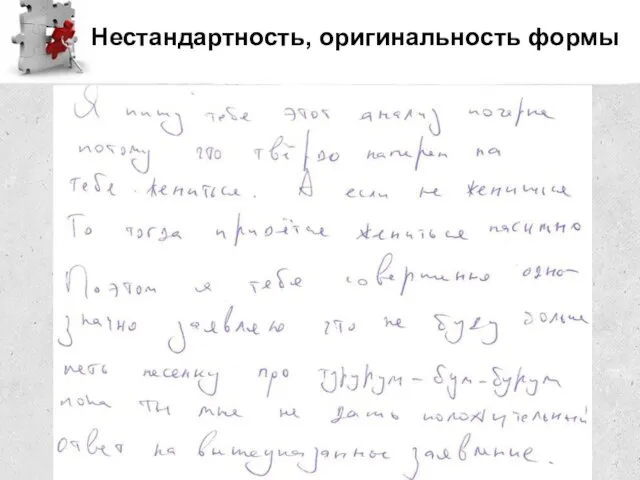 Нестандартность, оригинальность формы
Я пишу тебе этот анализ почерка
потому что твёрдо намерен на
тебе жениться. А если не женишься
То тогда придётся жениться насильно
Поэтому я тебе совершенно одно-
значно заявляю что не буду больше
петь песенку про турурум-бум-бурум
пока ты мне не дашь положительный
ответ на вышеуказанное заявление.